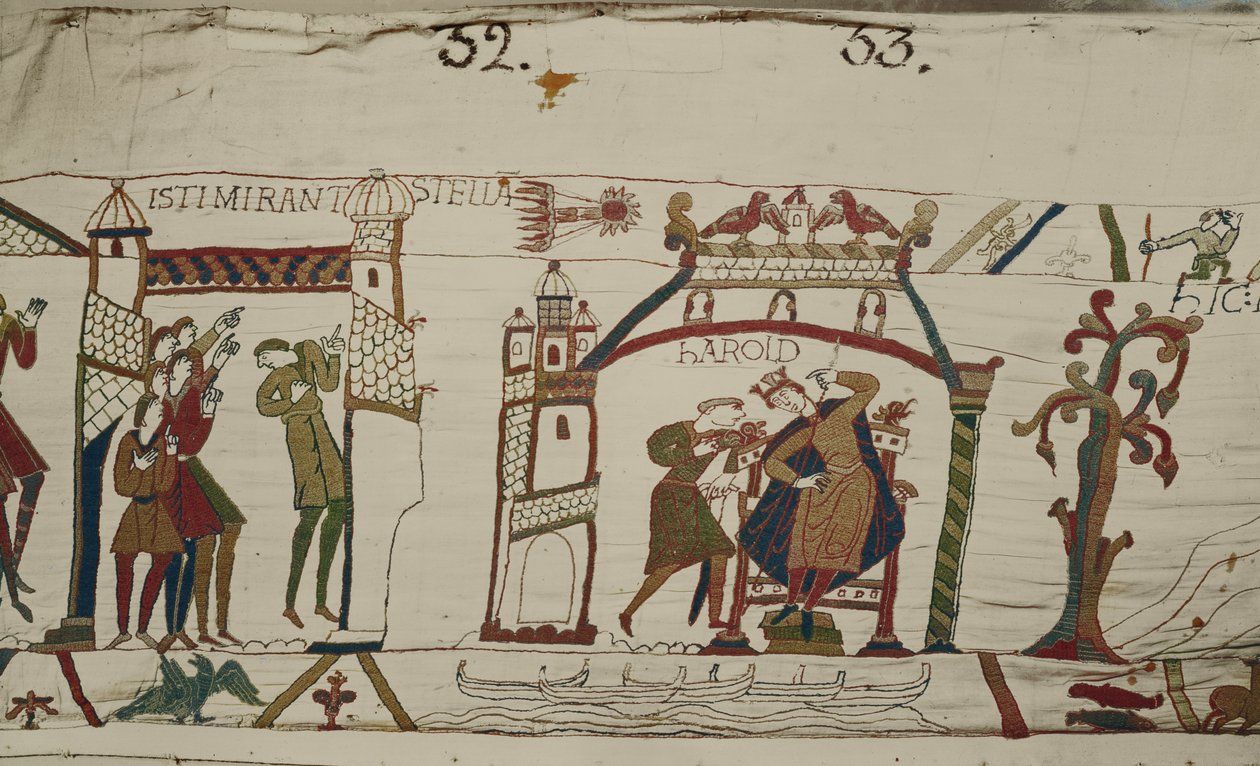 32.
33.
ISTI MIRANT STELLĀ
hAROLD
hIC: